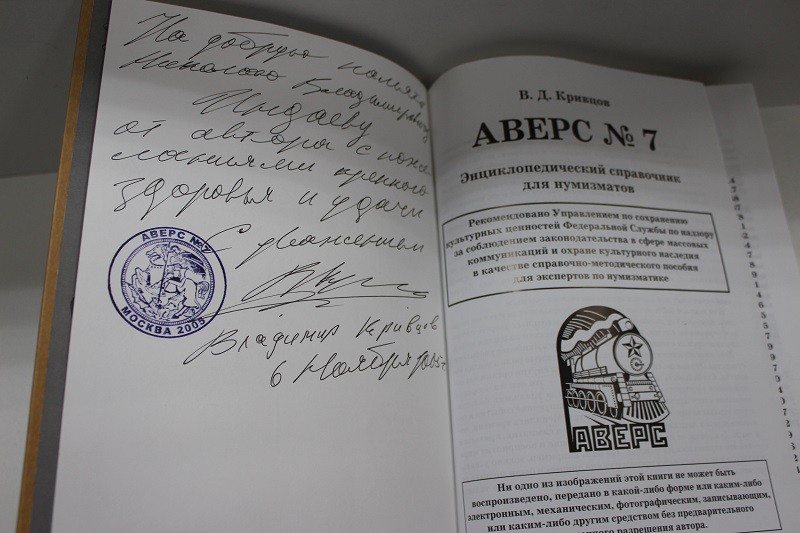 На добрую память
Николаю Владимировичу
от автора с поже
ланиями крепкого
здоровья и удачи
С уважением
АВЕРС №
МОСКВА 2005
Владимир Кривцов
6 Ноября
В. Д. Кривцов
АВЕРС № 7
Энциклопедический справочник
для нумизматов
Рекомендовано Управлением по сохранению
культурных ценностей Федеральной Службы по надзору
за соблюдением законодательства в сфере массовых
коммуникаций и охране культурного наследия
в качестве справочно-методического пособия
для экспертов по нумизматике
АВЕРС
Ни одно из изображений этой книги не может быть
воспроизведено, передано в какой-либо форме или каким-либо
электронным, механическим, фотографическим, записывающим,
или каким-либо другим средством без предварительного
разрешения автора.